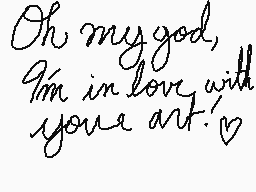 Oh my god,
I'm in love with
your art! ♡